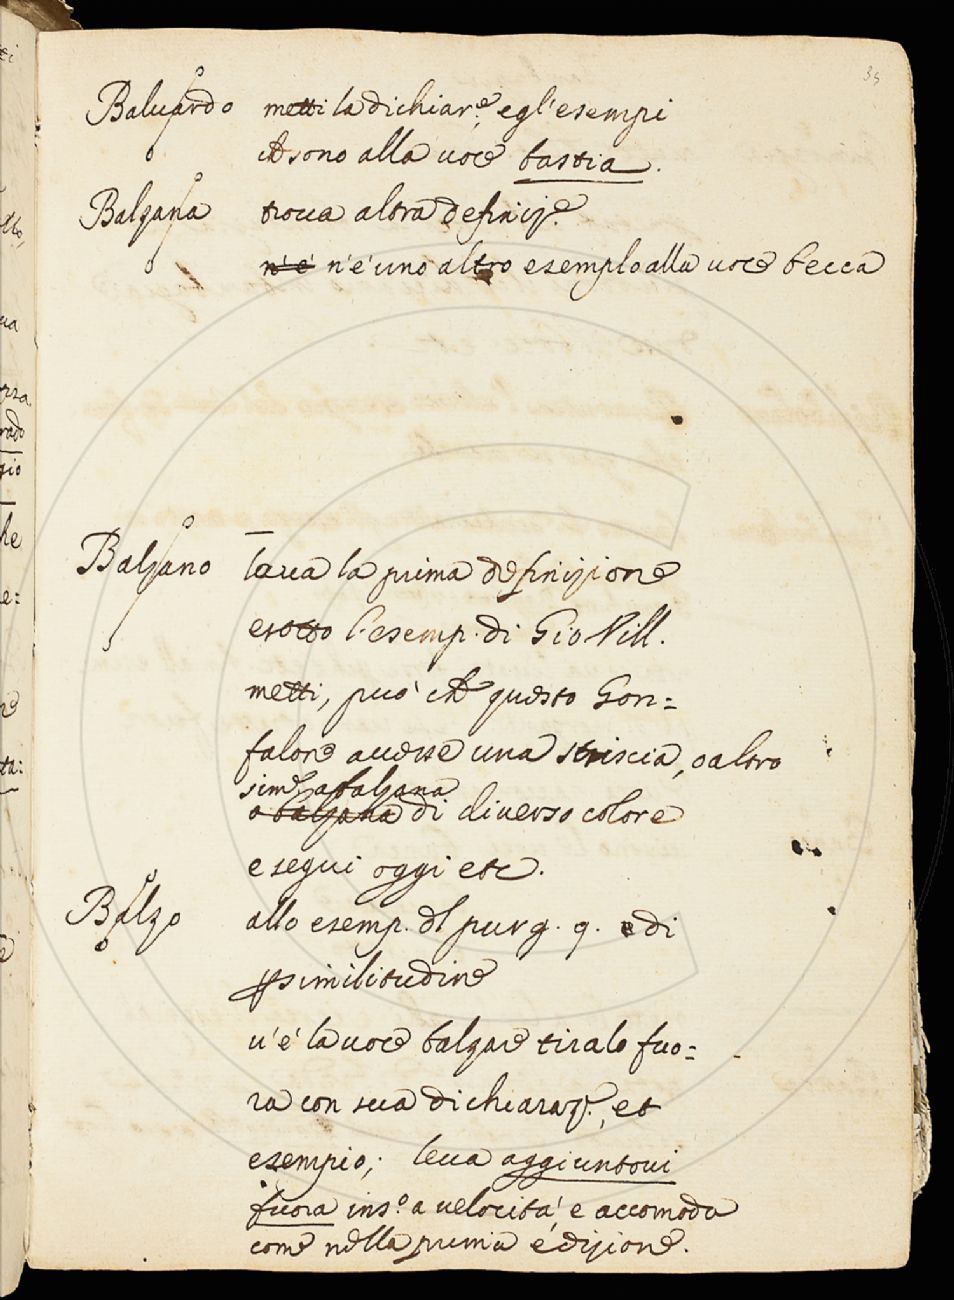 35
Baluardo metti la dichiar.e e gl'esempi
che sono alla voce bastia.
Balzana trova altra definiz.e
n'é n'é uno altro esemplo alla voce becca
Balzano leva la prima definizione
e sotto l'esemp. di Gio Vill.
metti, può che questo Gon=
falone avesse una striscia, o altro
sime, a balzana
o balzana di diverso colore
e segui oggi etc.
Balzo allo esemp. del purg. 9. e di
per similitudine
v'é la voce balzare tiralo fuo=
ra con sua dichiaraz.e, et
esempio; leva aggiuntovi
fuora ins.o a velocità, e accomoda
come nella prima edizione.